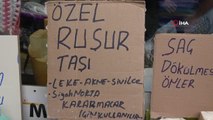 İHA
ÖZEL
RUSUR
TAŞI
- LEKE-AKNE-SİVİLCE
SiyahNOKTA
KARARMALAR
İÇİN KULLANILIR
SAĞ
DÖKÜLMES
ÖNLER